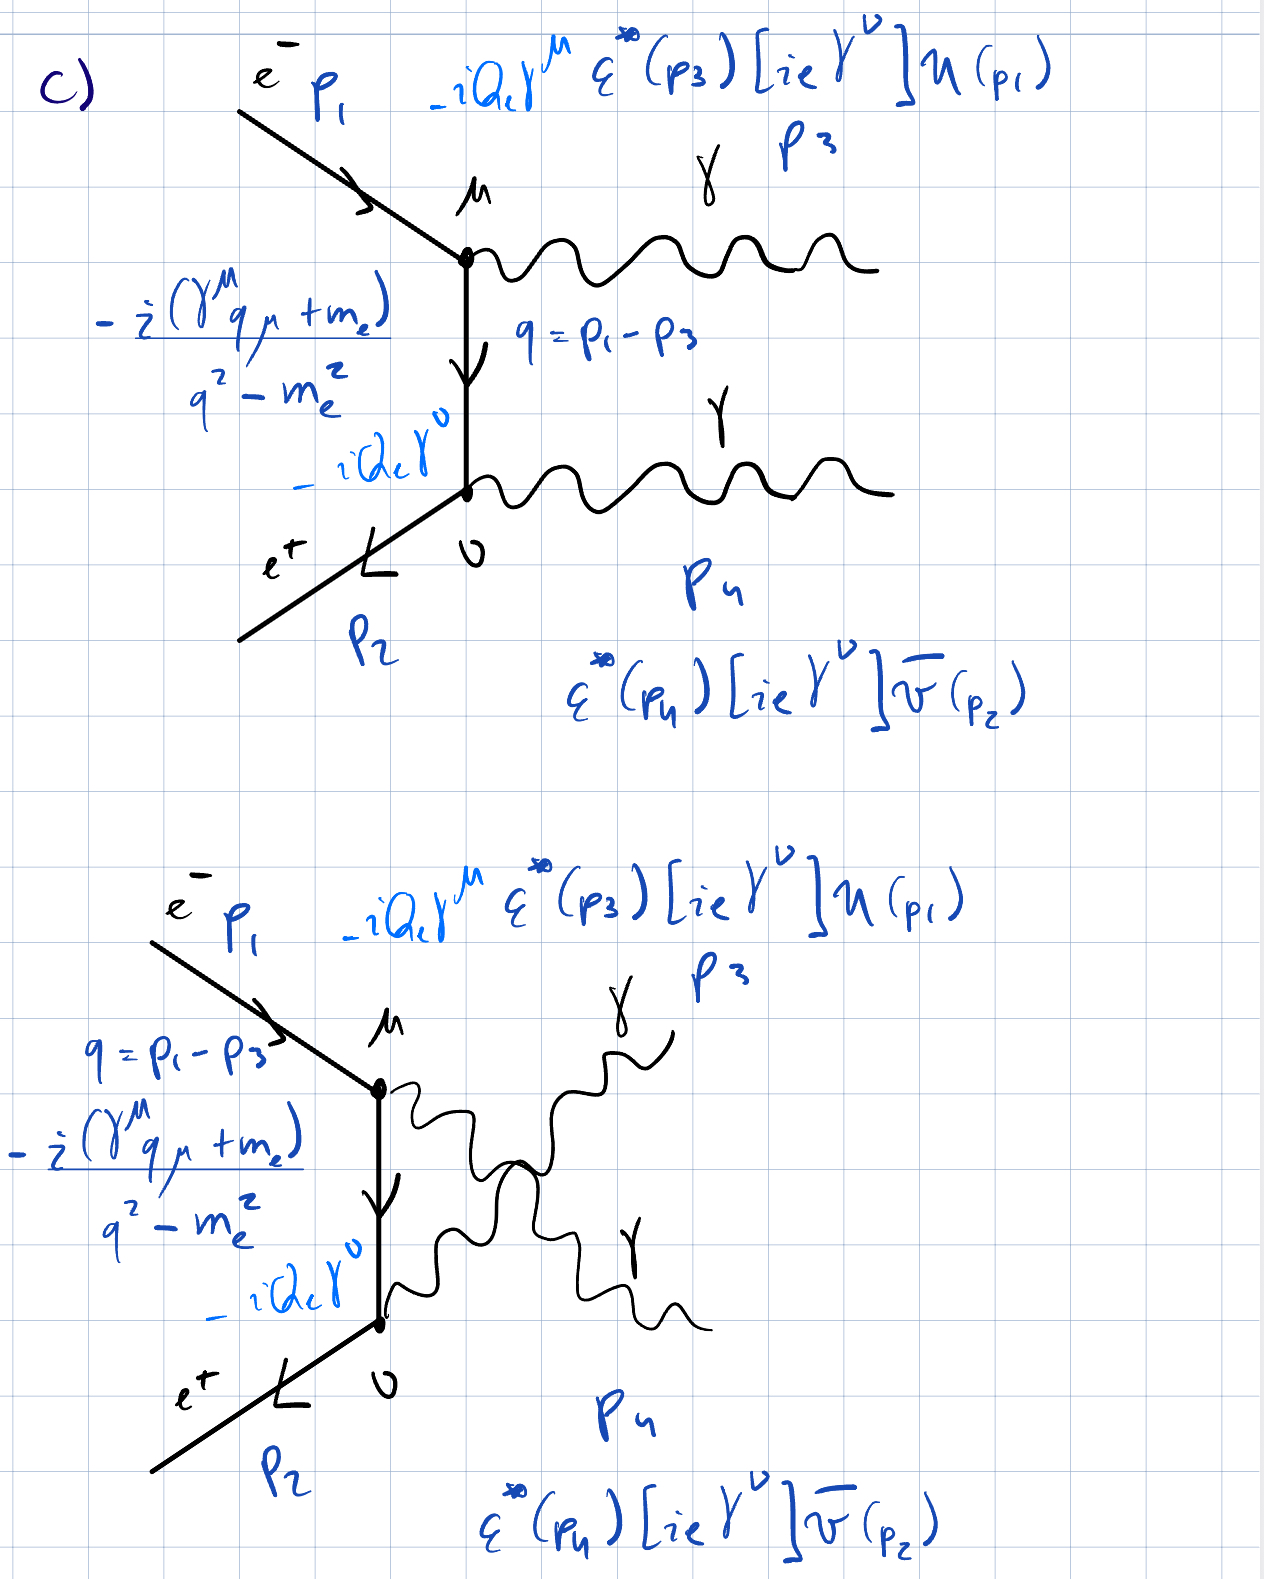 c)
e⁻ p₁ -iQₑγ^μ ε*(p₃)[ieγ^ν]u(p₁)
γ p₃
μ
-i(γ^μ q_μ + mₑ) / q² - mₑ²
q = p₁ - p₃
γ
-iQₑγ^ν
e⁺ ν
p₂ p₄
ε*(p₄)[ieγ^ν]v̄(p₂)
e⁻ p₁ -iQₑγ^μ ε*(p₃)[ieγ^ν]u(p₁)
γ p₃
μ
q = p₁ - p₃
-i(γ^μ q_μ + mₑ) / q² - mₑ²
γ
-iQₑγ^ν
e⁺ ν
p₂ p₄
ε*(p₄)[ieγ^ν]v̄(p₂)